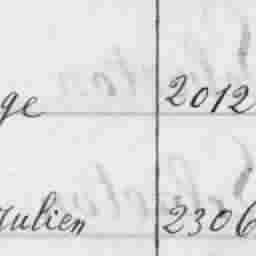 ge 2012
Julien 2306